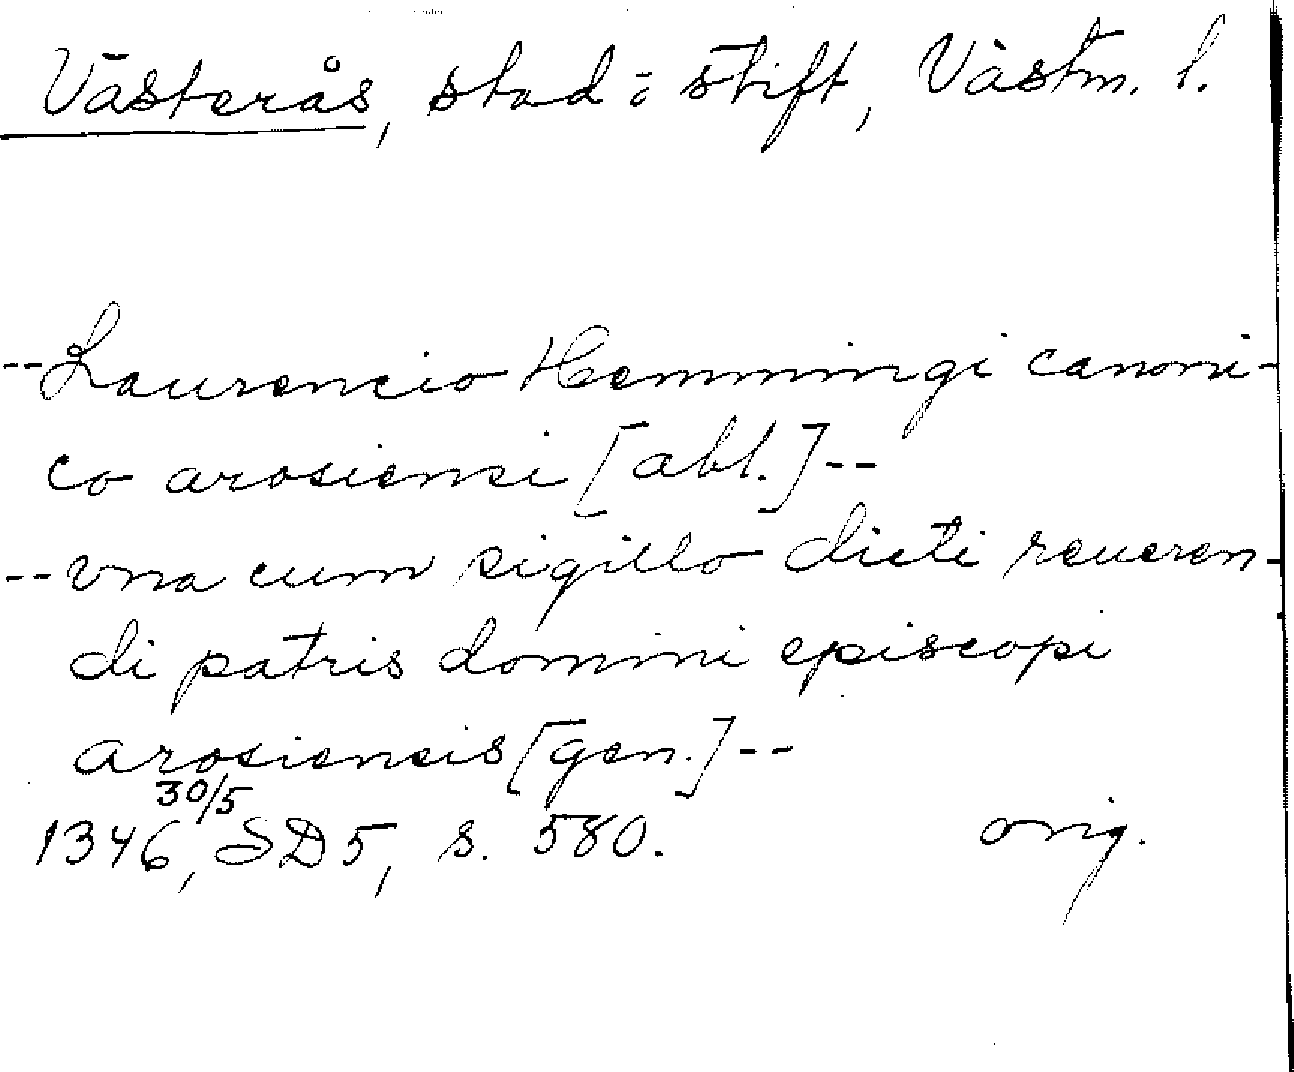 Västerås, stad o. stift, Västm. l.
--Laurencio Hemmingi canoni-
co arosiensi [abl.]--
--vna cum sigillo dicti reueren-
di patris domini episcopi
arosiensis [gen.]--
30/5
1346, SD5, s. 580. orig.